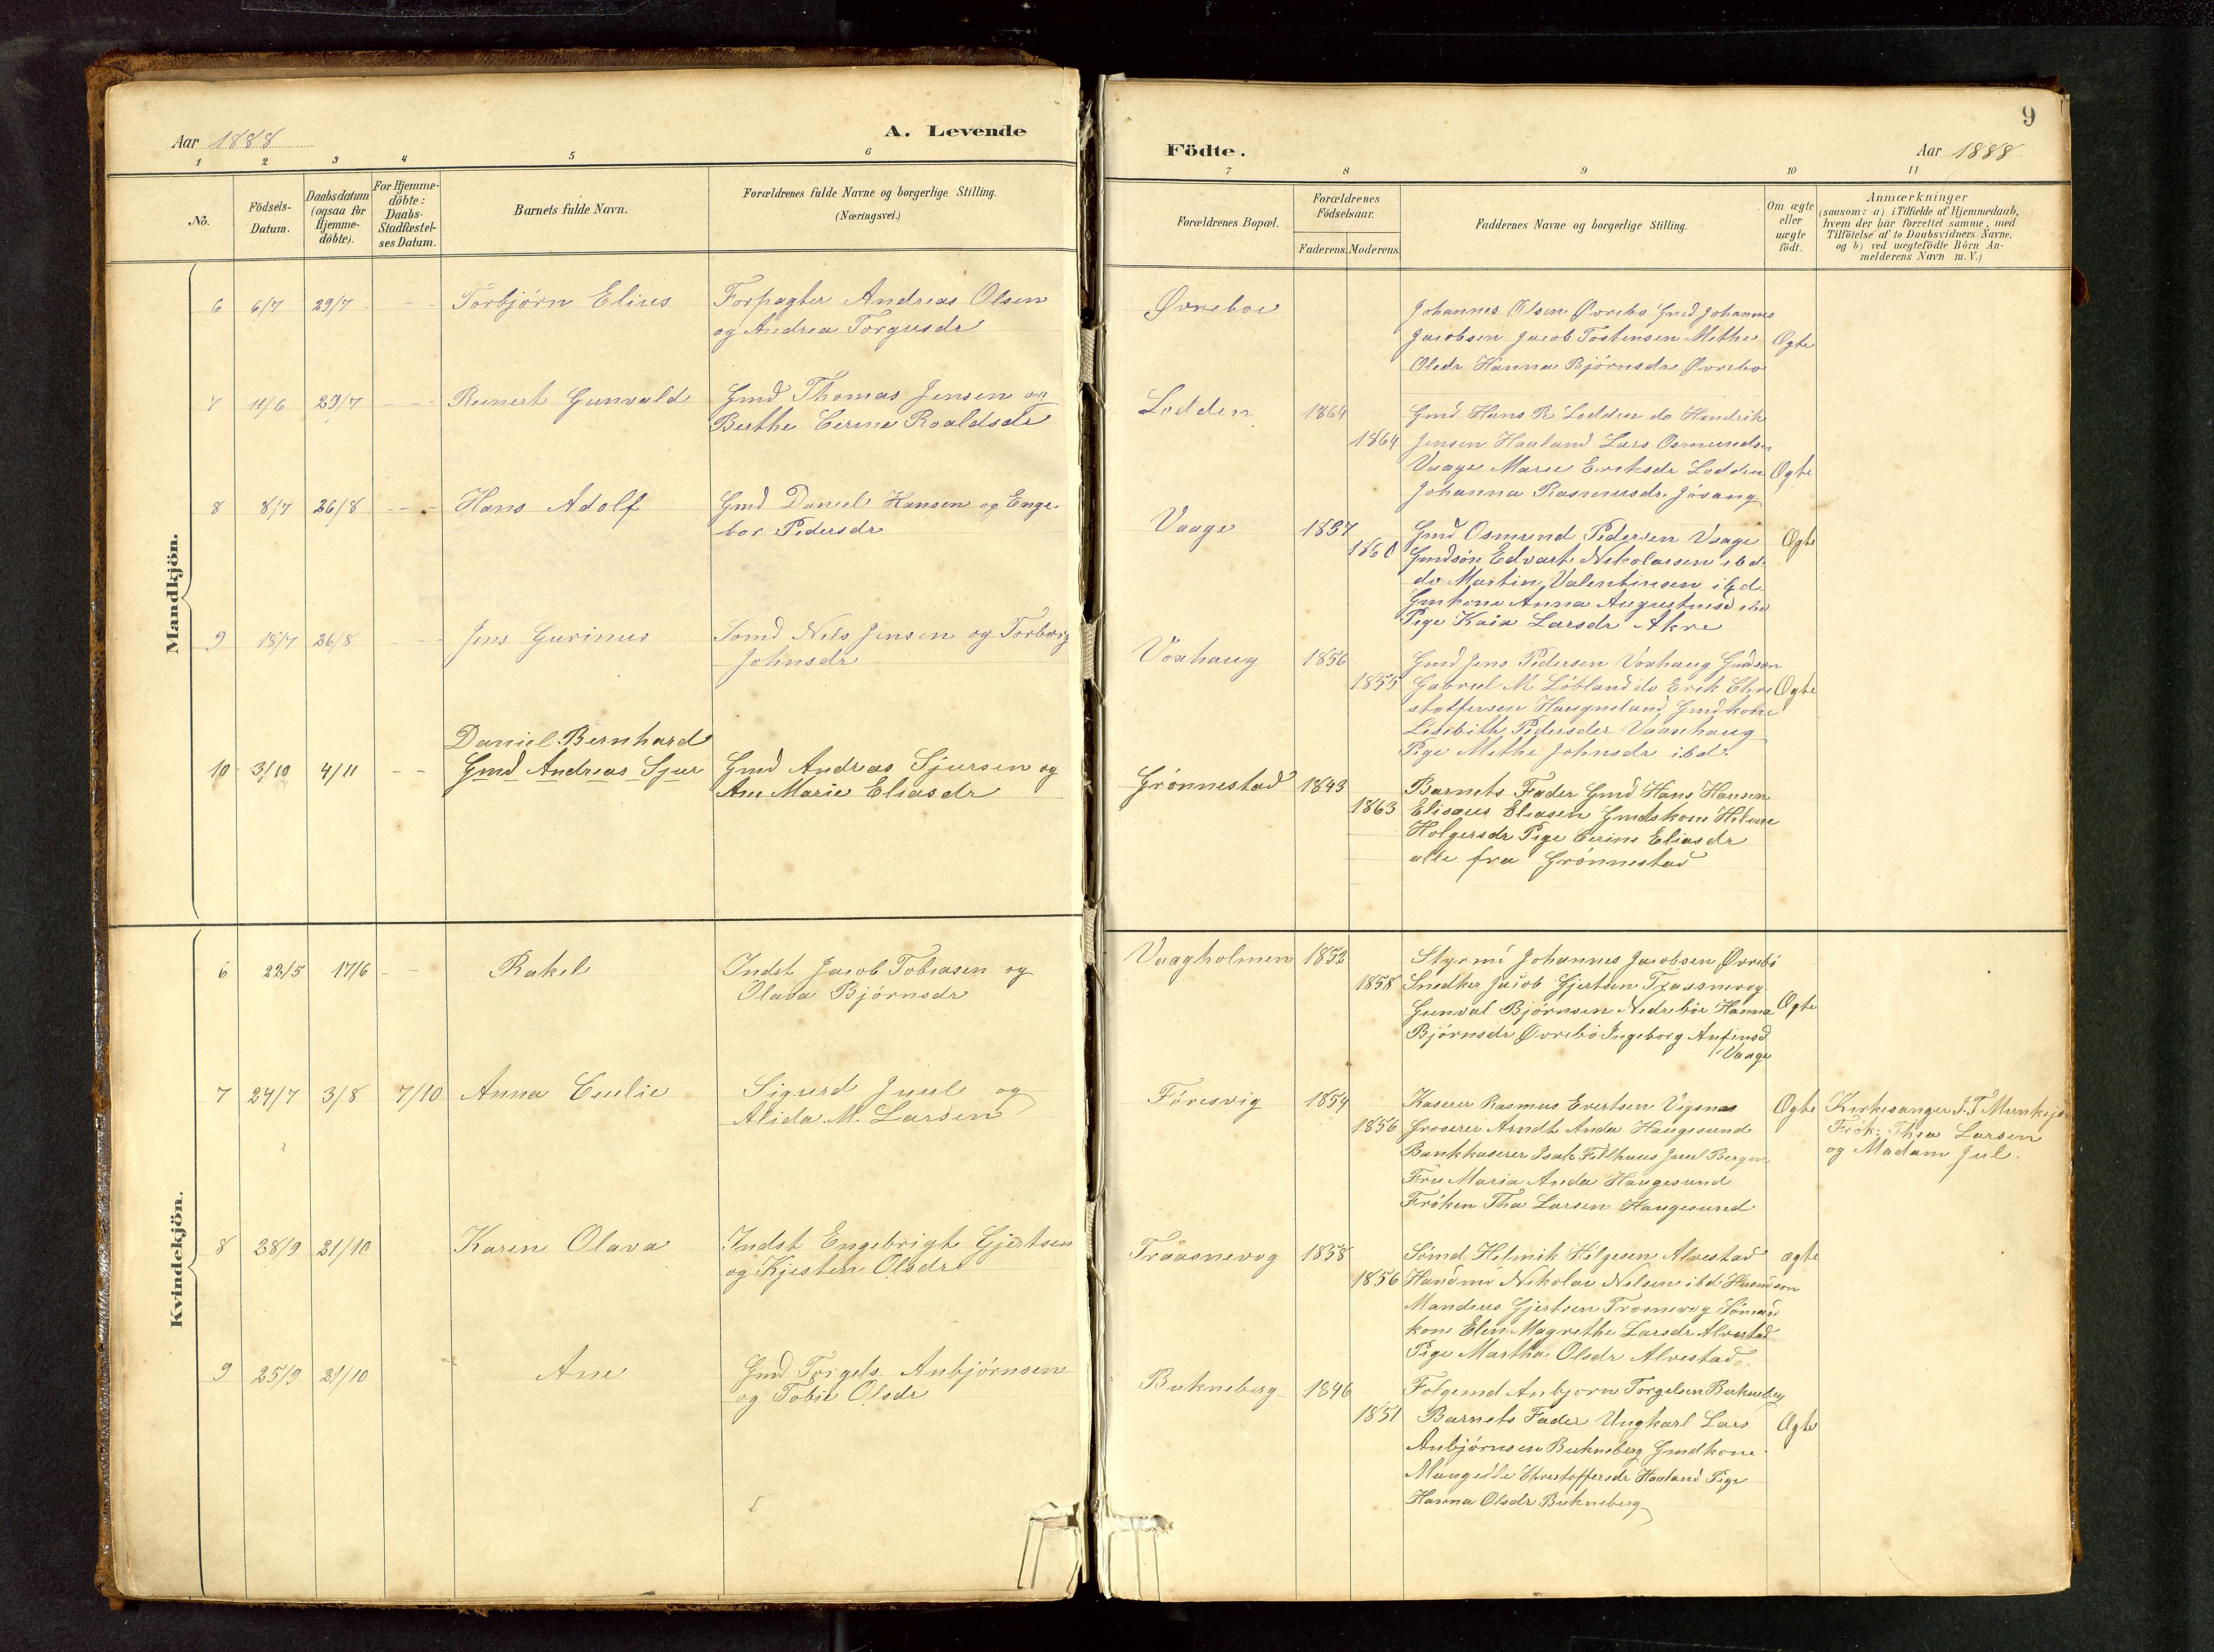 9
Aar 1888 A. Levende
Födte. Aar 1888
1 2 3 4 5 6
7 8 9 10 11
No.
Födsels-
Datum.
Daabsdatum
(ogsaa for
Hjemme-
döbte).
For Hjemme-
döbte:
Daabs-
Stadfæstel-
ses Datum.
Barnets fulde Navn.
Forældrenes fulde Navne og borgerlige Stilling.
(Næringsvei.)
Forældrenes Bopæl.
Forældrenes
Födselsaar.
Faderens. Moderens.
Faddernes Navne og borgerlige Stilling.
Om ægte
eller
uægte
födt.
Anmærkninger
(saasom: a) i Tilfælde af Hjemmedaab,
hvem der har forrettet samme, med
Tilföielse af to Daabsvidners Navne,
og b) ved uægtefödte Börn An-
melderens Navn m. V.)
Mandkjön.
6 6/7 29/7 - - Torbjörn Elius
Forpagter Andreas Olsen
og Andrea Torgusdr
Øvreboe
Johannes Olsen Øvrebo Gmd Johannes
Jacobsen Jacob Tostensen Methe
Olsdr Hanna Björnsdr Øvrebo
Ogte
7 11/6 29/7 - - Reinert Gunvald
Gmd Thomas Jensen og
Berthe Cerine Roaldsdr
Lodden 1864
1864
Gmd Hans R Lodden do Hendrik
Jensen Haaland Lars Osmundsen
Vaage Marie Eriksdr Lodden
Johanna Rasmusdr. Jösang
Ogte
8 8/7 26/8 - - Hans Adolf
Gmd Daniel Hansen og Enge
bor Pedersdr
Vaage 1857
1860
Gmd Osmund Pedersen Vaage
Gmdsön Edvart Nikolaisen ibd.
do Martin Valentinsen ibd
Gmkone Anna Augustinusd ibd
Pige Kaia Larsdr Akre
Ogte
9 18/7 26/8 - - Jens Gurinus
Somd Nils Jensen og Torborg
Johnsdr
Voxhaug 1856
1855
Gmd Jens Pedersen Voxhaug Gmdson
Gabriel M Löbland do Erik Chri
stoffersen Haugneland Gmdkone
Lisebith Pedersder Vaaxhaug
Pige Methe Johnsdr ibd.
Ogte
10 3/10 4/11 - - Daniel Bernhard
Gmd Andreas Sjur
Gmd Andreas Sjursen og
Ane Marie Eliasdr
Grönnestad 1843
1863
Barnets Fader Gmd Hans Hansen
Elisaus Eliasen Gmdskone Helene
Holgersdr Pige Cerine Eliasdr
alle fra Grönnestad
Kvindekjön.
6 22/5 17/6 - - Rakel
Indst Jacob Tobiasen og
Olava Björnsdr
Vaagholmen 1852
1858
Styrmd Johannes Jacobsen Øvrebö
Snedker Jacob Gjertsen Traasnevog
Gunval Björnsen Nedreböe Hanna
Björnsdr Øvrebö Ingeborg Anfinsd
Vaage
Ogte
7 24/7 3/8 7/10 Anna Emilie
Sigurd Juul og
Alida M. Larsen
Föresvig 1854
1856
Kaserer Rasmus Evertsen Vigsnæs
Groserer Arndt Anda Haugesund
Bankkaserer Isak Juul Bergen
Fru Maria Anda Haugesund
Fröken Tha Larsen Haugesund
Ogte
Kirkesanger J. T
Frök. Thea Larsen
og Madam Jul.
8 28/9 21/10 Karen Olava
Indst Engebrigt Gjertsen
og Kjesten Olsdr
Traasnevog 1858
1856
Sömd Helmik Helgesen Alvestad
Nikolai Nilsen ibd Husmdson
Mandius Gjertsen Trosnevog Sömand
kone Elen Magrethe Larsdr Alvestad
Pige Martha Olsdr Alvestad
ægte
9 25/9 21/10 Ane
Gmd Torgels Anbjörnsen
og Tobie Olsdr
Bukneberg 1846
1851
Folgemd Anbjorn Torgelsen Bukneberg
Barnets Fader Ungkarl Lars
Anbjörnsen Bukneberg Gmdkone
Mangelle Christoffersdr Haaland Pige
Hanna Olsdr Bukneberg
Ogte